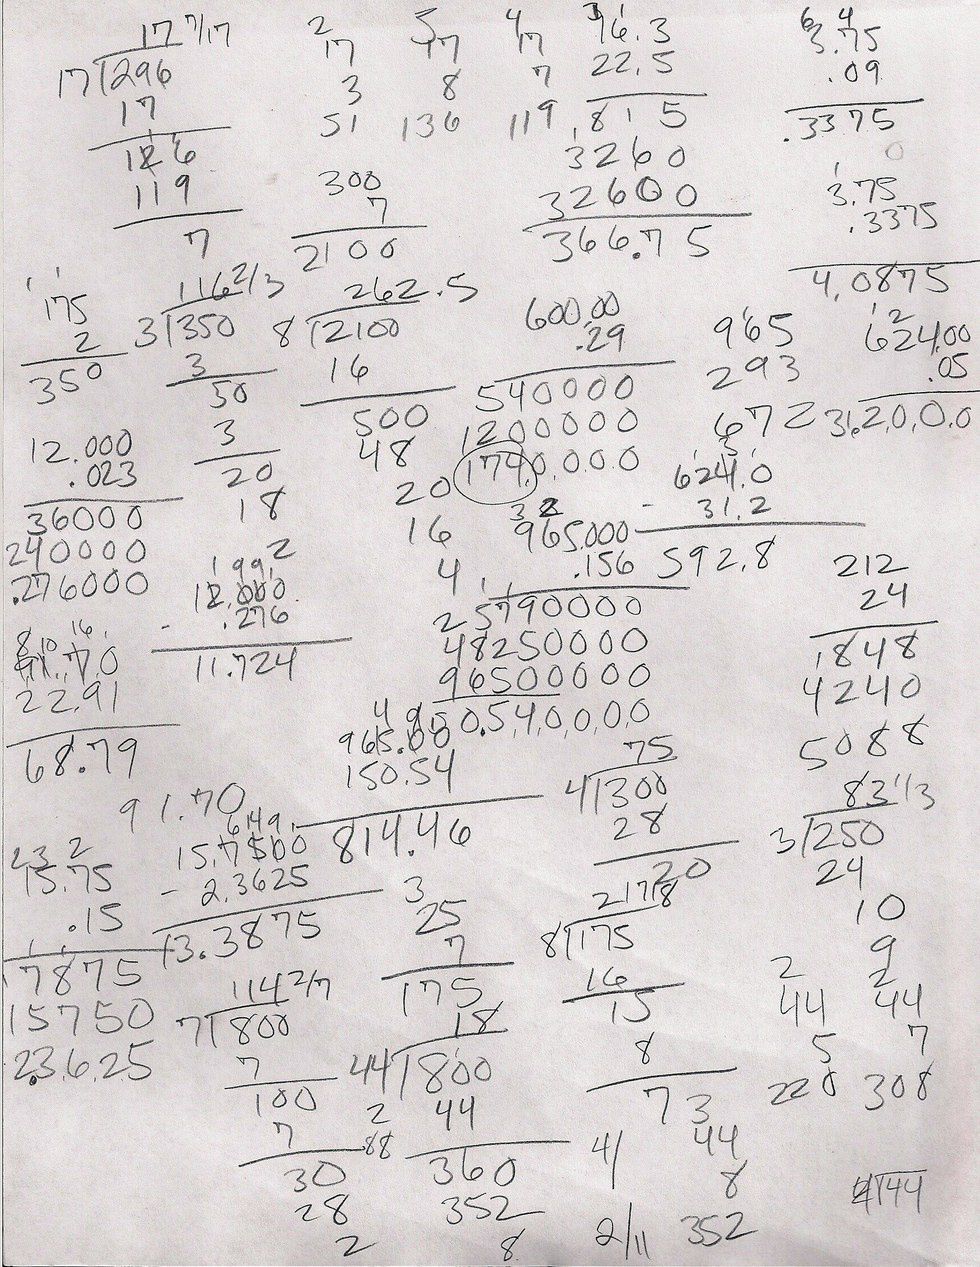 17 7/17
17 296
17
126
119
7
2
17
3
51
5
17
8
136
4
17
7
119
16.3
22.5
815
3260
32600
366.75
6 4
3.75
.09
.3375
0
300
7
2100
1
3.75
.3375
4.0875
1 1
175
2
350
116 2/3
3 350
3
50
3
20
18
2
262.5
8 2100
16
500
48
20
16
4
600.00
.29
540000
1200000
174.0000
965
293
672
1 2
624.00
.05
31.2000
12.000
.023
36000
240000
.276000
1 9 9 1
12.000
.276
11.724
3 2
965.000
.156
5790000
48250000
96500000
150.540000
624.0
- 31.2
592.8
212
24
848
4240
5088
8 10 16 1
91.70
22.91
68.79
91.70
4 9
965.00
150.54
814.46
75
4 300
28
20
83 1/3
3 250
24
10
9
2 3 2
15.75
.15
7875
15750
2.3625
6 14 9 1
15.7500
- 2.3625
13.3875
3
25
7
175
217/8
8 175
16
15
8
7
114 2/7
7 800
7
100
7
30
28
2
18
44 800
44
360
352
8
2
88
2
44
5
220
2
44
7
308
3
44
8
352
4/
2/11
4 44